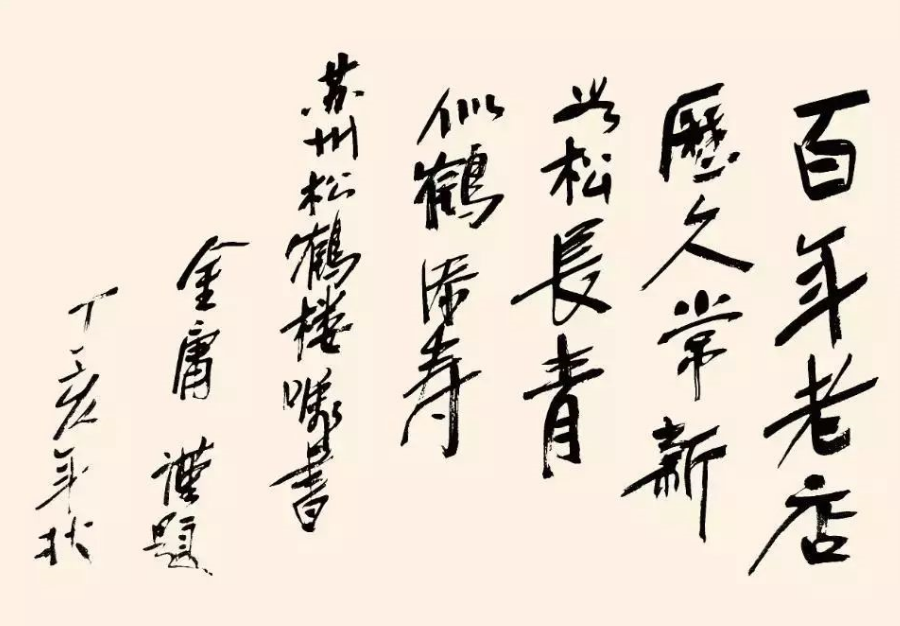 百年老店
歷久常新
如松長青
似鶴添寿
苏州松鶴楼嘱書
金庸 谨題
丁亥年秋